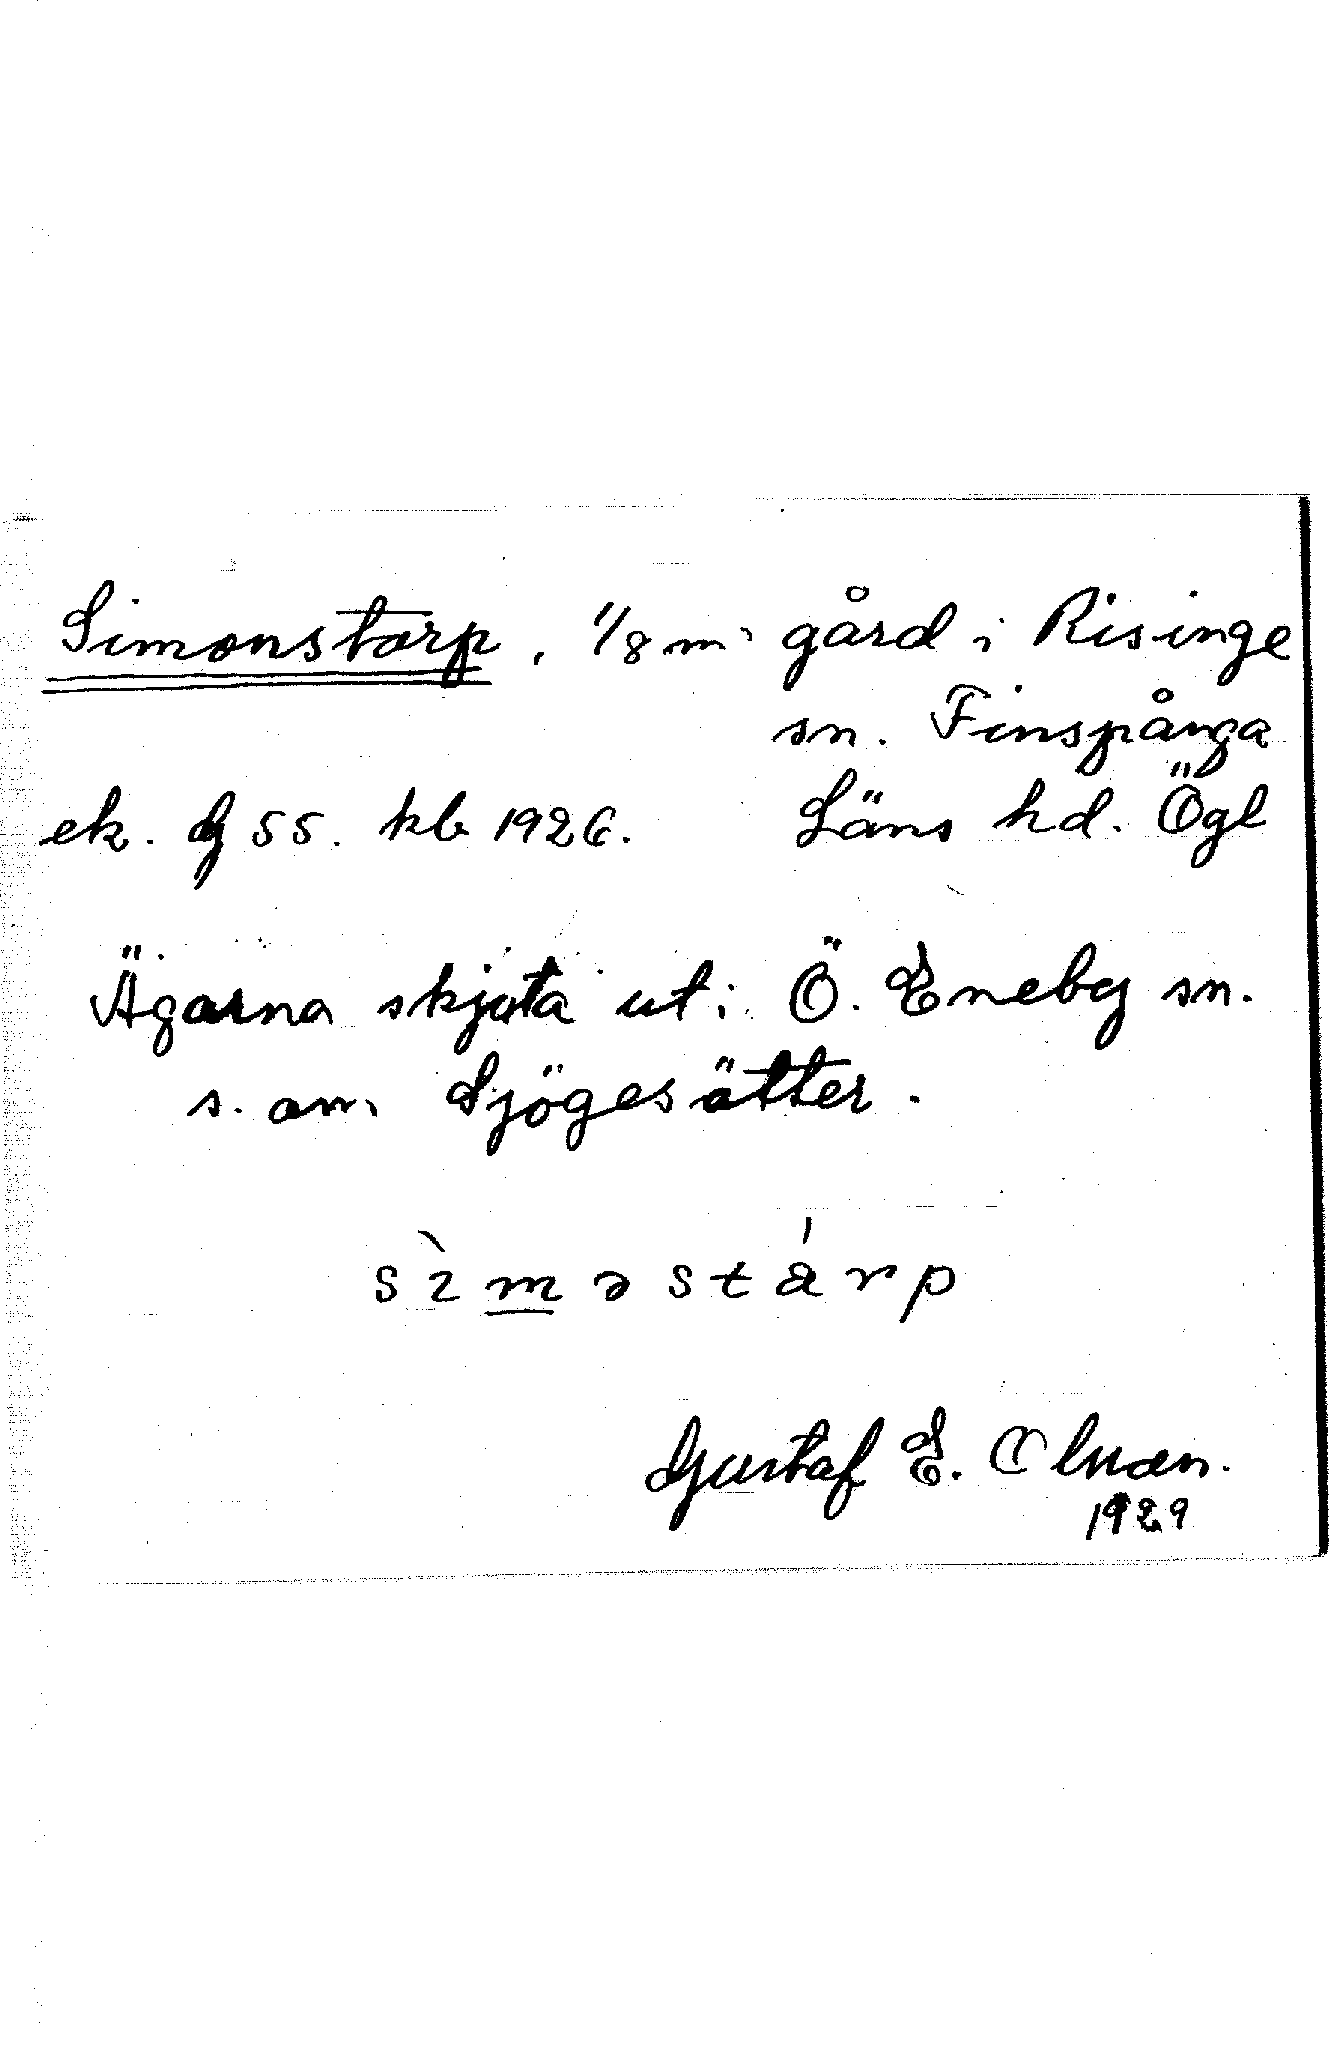 Simonstorp, 1/8 m. gård i Risinge
sn. Finspånga
ek. bg 55. kb 1926. Läns hd. Ögl
Ägorna skjuta ut i Ö. Eneby sn.
s. om Sjögesätter.
sìməstárp
Gustaf E.
1929